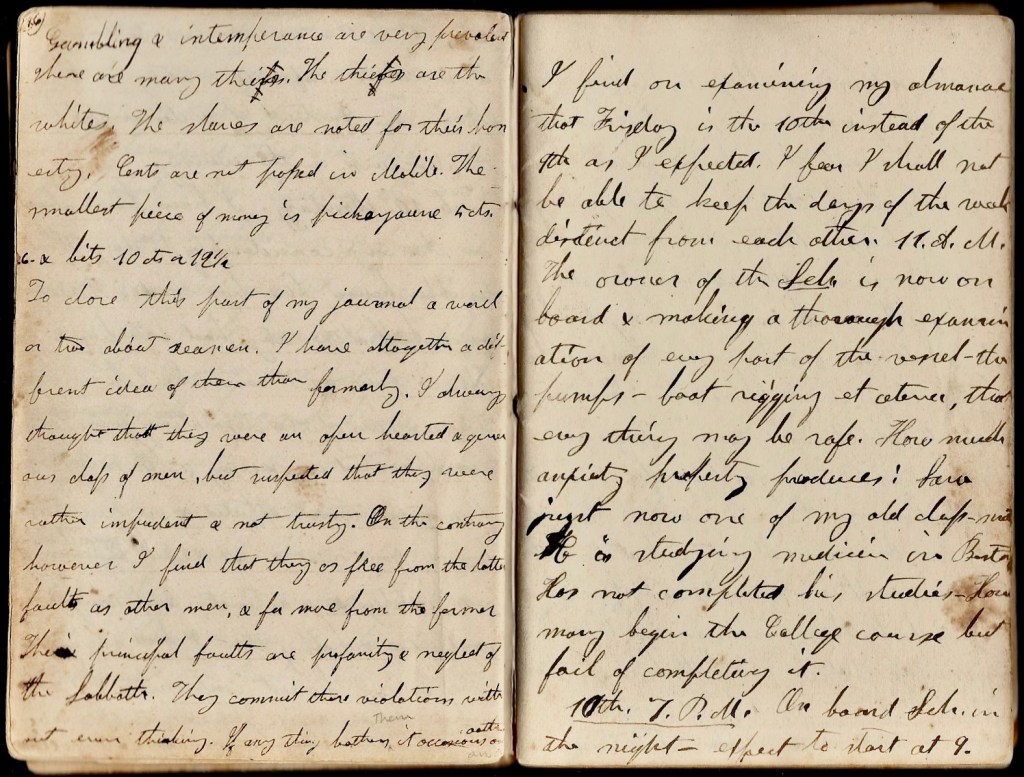 (36)
Gambling & intemperance are very prevalent
there are many thiefs. The thiefs are the
whites. The slaves are noted for their hon
esty. Cents are not passed in Mobile. The
smallest piece of money is pickayaune 5 cts.
6. & bits 10 cts or 12 1/2
To close this part of my journal a word
or two about seamen. I have altogether a dif-
ferent idea of them than formerly. I always
thought that they were an open hearted & gener
ous class of men, but suspected that they were
rather impudent & not trusty. On the contrary
however I find that they as free from the latter
faults as other men, & far more from the former
Their principal faults are profanity & neglect of
the Sabbath. They commit these violations with
out even thinking. If any thing bothers them it occasions an oath
I find on examining my almanac
that Friday is the 10th instead of the
9th as I expected. I fear I shall not
be able to keep the days of the week
distinct from each other. 11. A. M.
The owner of the Sch is now on
board & making a thorough examin
ation of evry part of the vessel - the
pumps - boat rigging et cetera, that
evry thing may be safe. How much
anxiety property produces! Saw
just now one of my old class-mates
He is studying medicin in Boston
Has not completed his studies - How
many begin the College course but
fail of completing it.
10th. 7. P. M. On board Sch. in
the night - expect to start at 9.